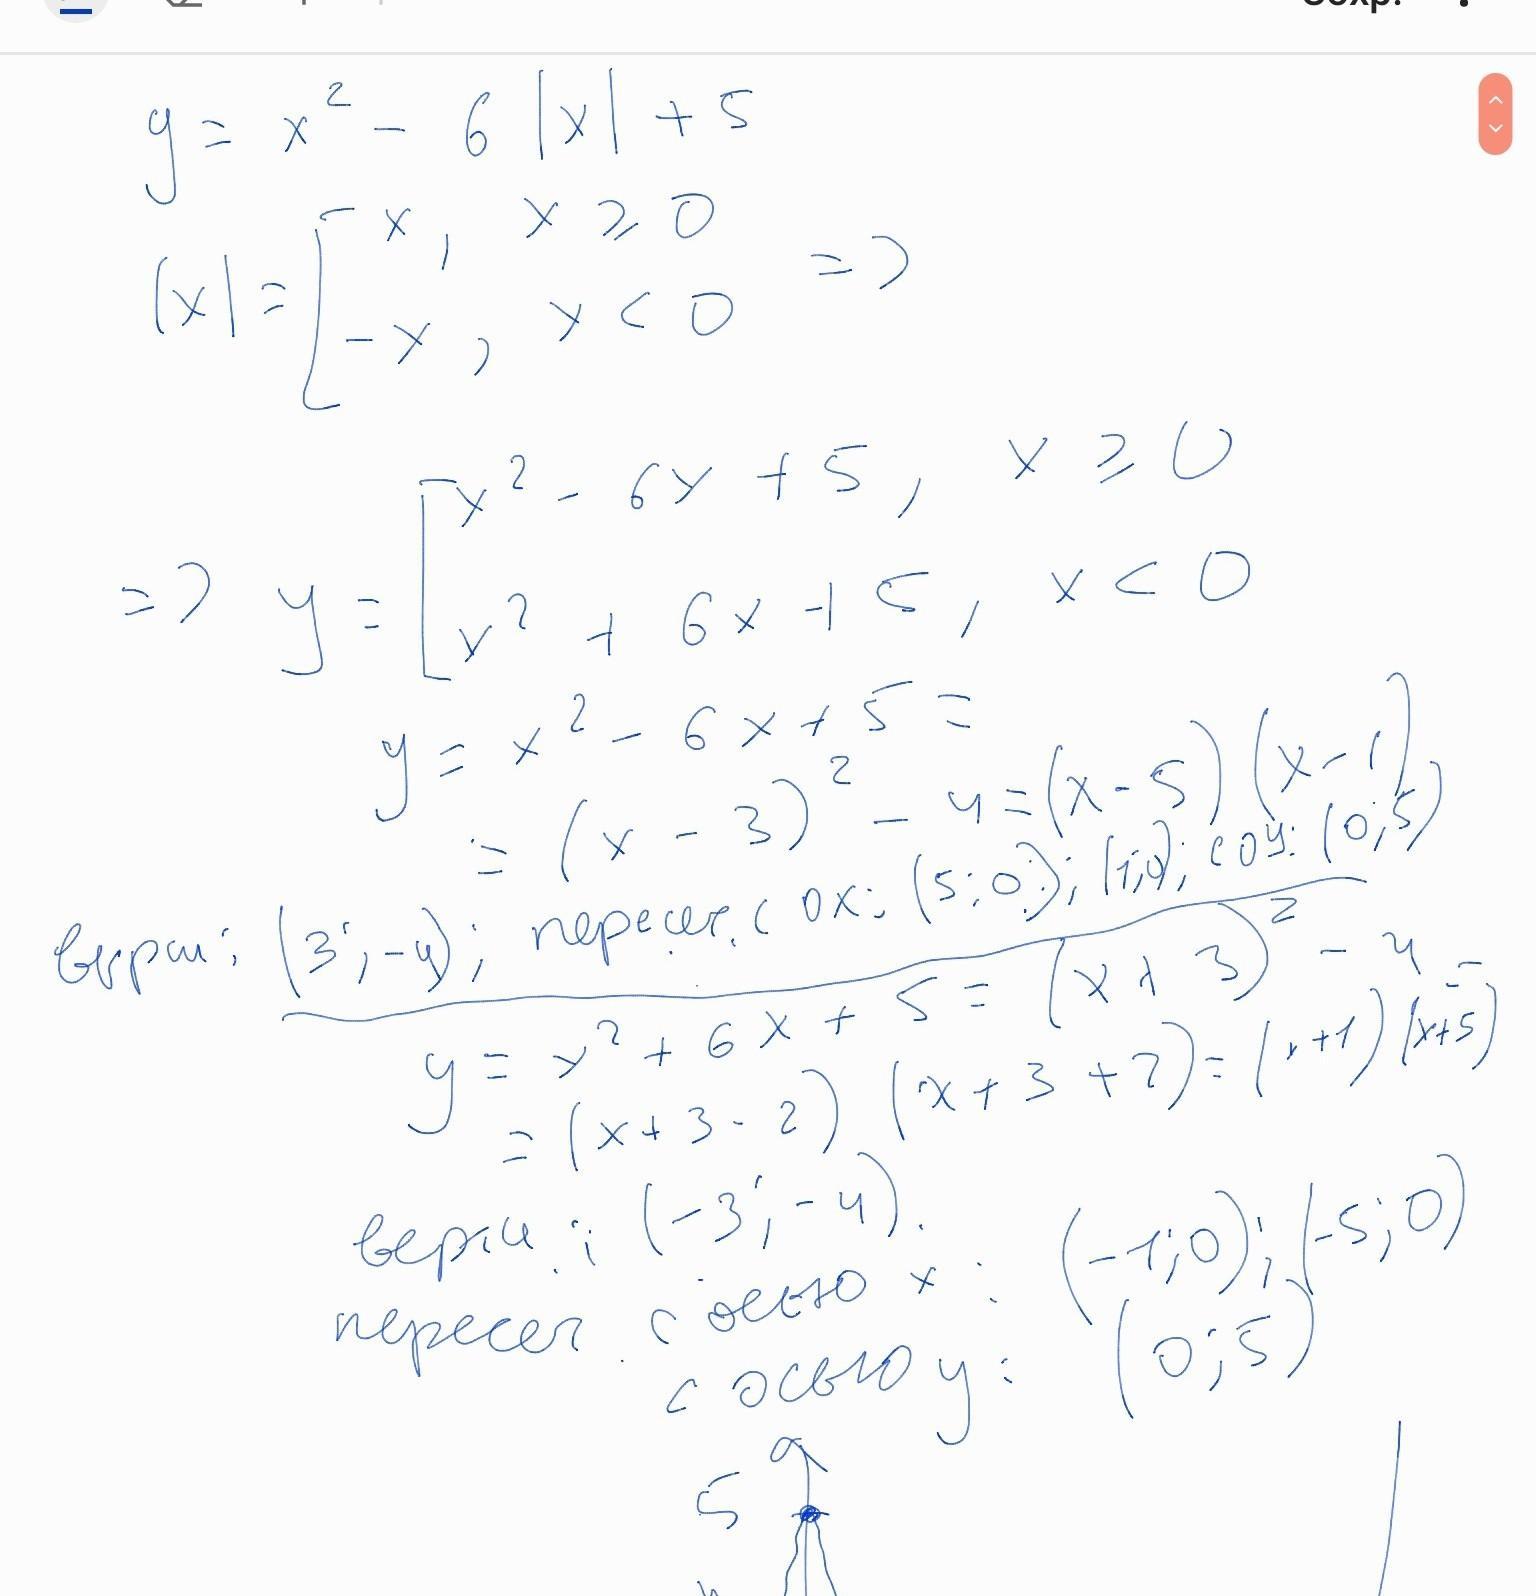 Сохр.
y = x² - 6 |x| + 5
|x| = [ x, x ≥ 0
-x, x < 0 =>
=> y = [ x² - 6x + 5, x ≥ 0
x² + 6x + 5, x < 0
y = x² - 6x + 5 =
= (x - 3)² - 4 = (x - 5)(x - 1)
верш: (3; -4); пересеч. с ox: (5; 0); (1; 0); с oy: (0; 5)
y = x² + 6x + 5 = (x + 3)² - 4 =
= (x + 3 - 2)(x + 3 + 2) = (x + 1)(x + 5)
верш.: (-3; -4).
пересеч. с осью x: (-1; 0); (-5; 0)
с осью y: (0; 5)
5